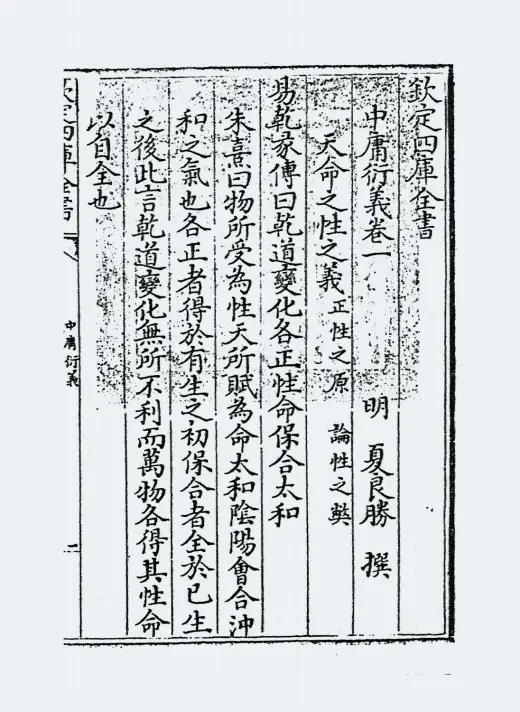 欽定四庫全書
中庸衍義卷一
明 夏良勝 撰
天命之性之義 正性之原 論性之弊
易乾彖傳曰乾道變化各正性命保合太和
朱熹曰物所受為性天所賦為命太和陰陽會合沖
和之氣也各正者得於有生之初保合者全於已生
之後此言乾道變化無所不利而萬物各得其性命
以自全也
欽定四庫全書
中庸衍義
一